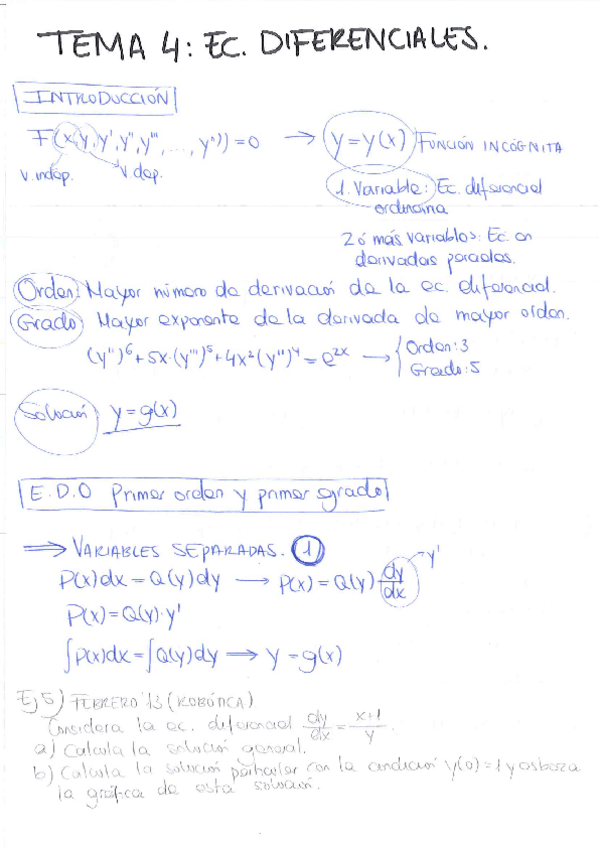 TEMA 4: EC. DIFERENCIALES.
INTRODUCCIÓN
F(x,y,y',y'',y''',...,yⁿ⁾)=0 → y=y(x) FUNCIÓN INCÓGNITA
v. indep. v dep.
1. Variable: Ec. diferencial
ordinaria
2 ó más variables: Ec. en
derivadas parciales.
Orden: Mayor número de derivación de la ec. diferencial.
Grado: Mayor exponente de la derivada de mayor orden.
(y'')⁶+5x·(y''')⁵+4x²(y'')⁴=e²ˣ → { Orden: 3
Grado: 5
Solución y=g(x)
E.D.O Primer orden y primer grado
⇒ VARIABLES SEPARADAS. 1
P(x)dx=Q(y)dy → P(x)=Q(y) dy/dx y'
P(x)=Q(y)·y'
∫P(x)dx=∫Q(y)dy → y=g(x)
Ej 5) FEBRERO '13 (ROBÓTICA)
Considera la ec. diferencial dy/dx = x+1/y.
a) Calcula la solución general.
b) Calcula la solución particular con la condición y(0)=1 y esboza
la gráfica de esta solución.